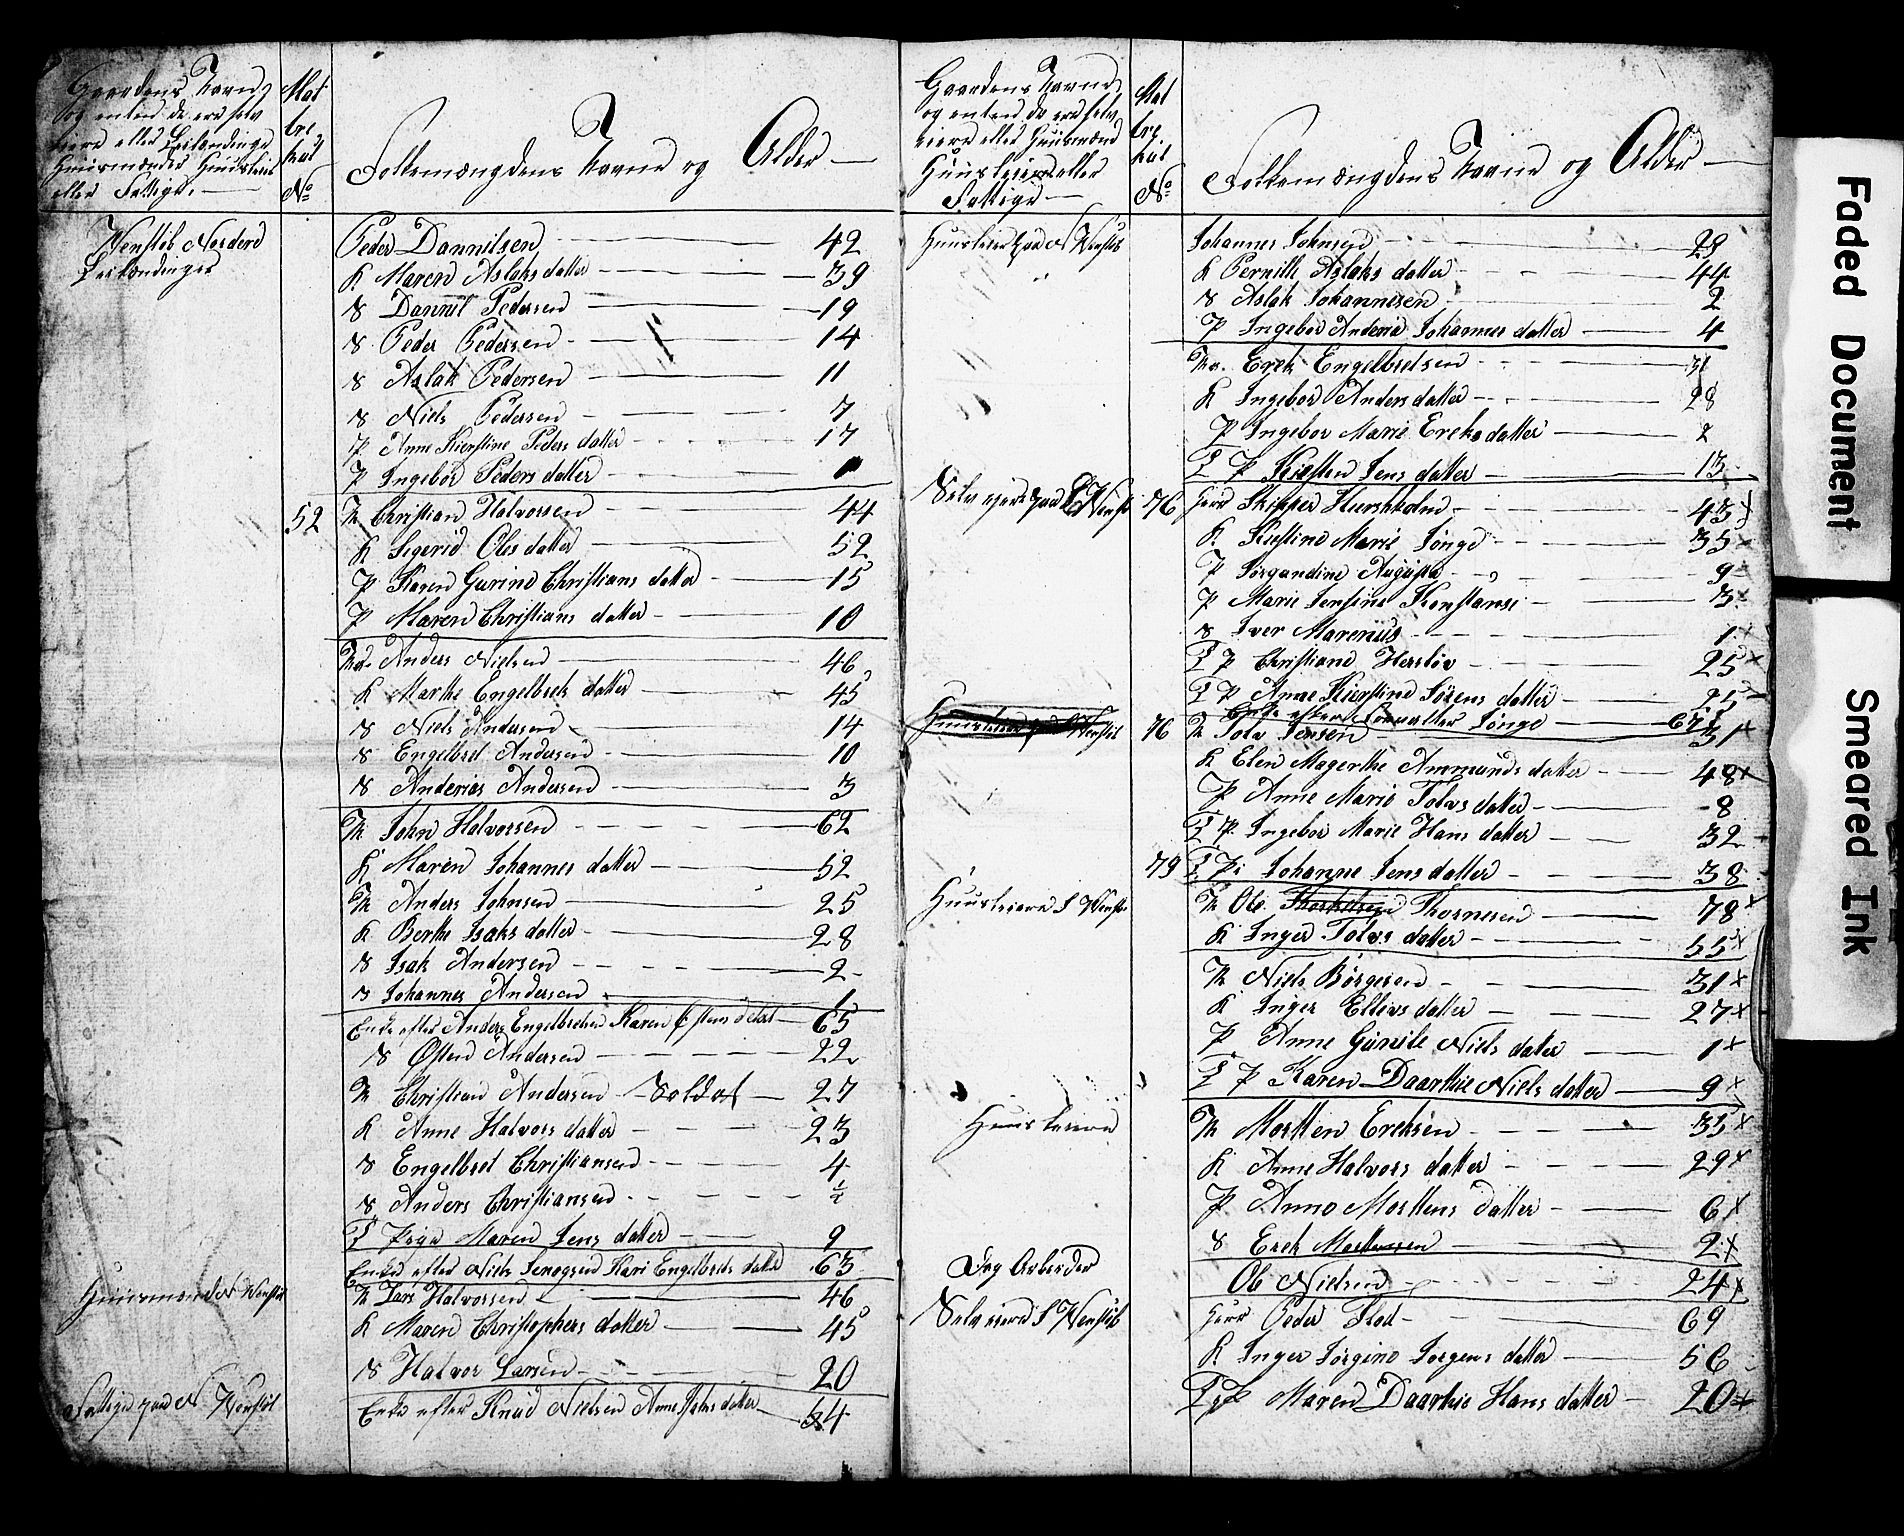 Gaardens Navne
og enten de ere selv
eiere eller Leilændinge
Huusmænder Huusleiere
eller Fattige.
Mat
tre
kul
No
Folkemængdens Navne og Alder
Wenstøb Nordere
Leilændinger
Peder Dannilsen 42
K Maren Aslaks datter 39
S Dannil Pedersen 19
S Peder Pedersen 14
S Aslak Pedersen 11
S Niels Pedersen 7
P Anne Kierstine Peders datter 17
P Ingebor Peders datter
52 M Christian Halvorsen 44
K Sigerid Oles datter 52
P Karen Gurine Christians datter 15
P Maren Christians datter 10
Anders Nielsen 46
K Marthe Engelbrets datter 45
S Niels Andersen 14
S Engelbret Andersen 10
S Anderias Andersen 3
M John Halvorsen 62
K Maren Johannes datter 52
M Anders Johnsen 25
K Berthe Isaks datter 28
S Isak Andersen 2
S Johannes Andersen 1
Enke efter Anders Engelbretsen Karen Østens datter 65
S Østen Andersen 22
M Christian Andersen Soldat 27
K Anne Halvors datter 23
S Engelbret Christiansen 4
S Anders Christiansen ½
T Pige Maren Jens datter 9
Enke efter Niels Kari Engelbrets datter 63
Huusmænd N Wenstøb
M Lars Halvorsen 46
K Maren Christophers datter 45
S Halvor Larsen 20
Fattige paa N Wenstøb
Enke efter Knud Nielsen Anne datter 54
Gaardens Navne
og enten de ere selv
eiere eller Huusmænd
Huusleiere eller
Fattige
Mat
tre
kul
No
Folkemængdens Navne og Alder
Huusleier paa N Wenstøb
Johannes Johnsen 29
K Pernille Aslaks datter 44
S Aslak Johannesen 2
P Ingebor Anderia Johannes datter 4
M Erek Engelbretsen 31
K Ingebor Anders datter 28
P Ingebor Marie Ereks datter 2
T P Kirsten Jens datter 13
Selv eiere paa Wenstøb 76
Herr Skipper Huersholm 43
K Kirstine Marie Jønge 35
P Jørgandine Augusta 9
P Marie Jensine Konstanse 3
S Iver Marenius 1
T P Christiane Hersløv 25
T P Anne Kierstine Sørens datter 25
Enke efter Jønge 67
76 M Tolv Jensen 31
K Elen Magerthe Ammunds datter 48
P Anne Marie Tolvs datter 8
T P Ingebor Marie Hans datter 32
79 T Pi Johanne Jens datter 38
Huusleiere S Wenstøb
M Ole Thornesen 78
K Inger Tolvs datter 55
M Niels Børgesen 31
K Inger Ellevs datter 27
P Anne Gunile Niels datter 1
T P Karen Daarthie Niels datter 9
Huusleiere
M Mortten Ereksen 35
K Anne Halvors datter 29
P Anne Morttens datter 6
S Erek Mortensen 2
Dag Arbeider
Ole Nielsen 24
Selv eiere S Wenstøb
Herr Peder Flod 69
K Inger Jørgine Jørgens datter 56
T P Maren Daarthie Hans datter 20
Faded Document
Smeared Ink